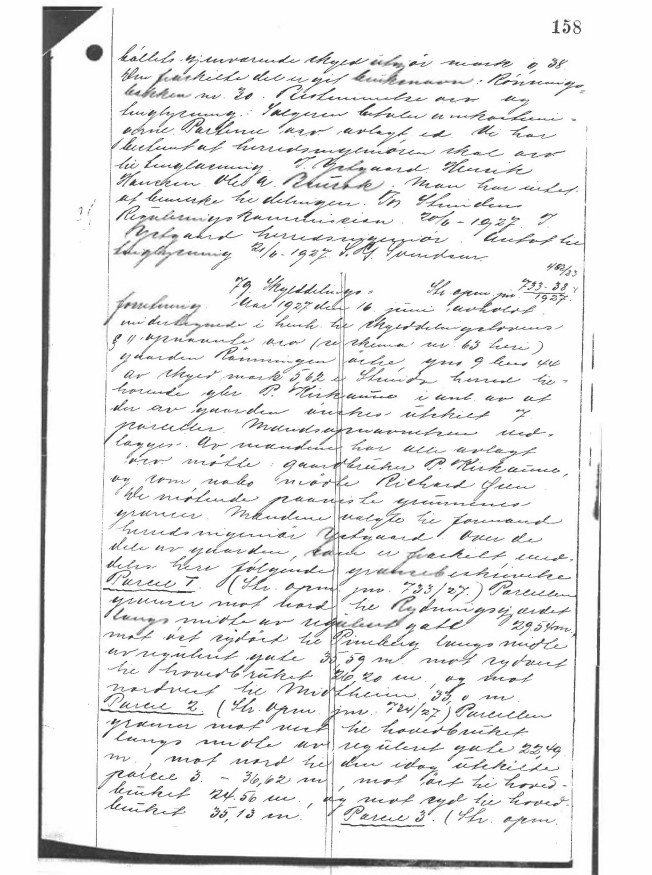 158
bøllets gjenværende skyld utgjør mark 9 38
Den fraskilte del er git bruksnavn: Rønnings-
bakken nr. 20. Bestemmelse om og
tinglysning: Sælgeren betaler omkostnin-
gene. Partene har avlagt ed. De har
bestemt at herredsingeniøren skal
til tinglæsning. J. Ystgaard Henrik
Hansen Ole A. Man har intet
at bemerke til delingen. Strindens
Reguleringskommission. 20/6-1927 J.
Ystgaard herredsingeniør. Mottat til
tinglysning 21/6 1927
482/33
79 Skylddelings- Str opm jnr. 733-38
1927
forretning. Aar 1927 den 16 juni avholdt
undertegnede i henh til skylddelingslovens
§ 11 opnævnte av (se skema nr 63 here)
gaarden Rønningen østre gnr 9 bnr 44
av skyld mark 5 62 i Strinda herred til-
hørende gbr. P. Kirkaune i anl av at
der av gaarden ønskes utskilt 7
parceller. Mandsopnævnelsen ved-
lægges. Av mændene har alle avlagt
møtte: gaardbruker P. Kirkaune,
og som nabo møtte Richard Øien
De møtende paaviste grunnens
grænser. Mændene valgte til formand
herredsingeniør Ystgaard Over de
dele av gaarden, som er fraskilt med-
deles here følgende grænsebeskrivelse
Parcel 1. (Str. opm. jnr. 733/27.) Parcellen
grænser mot nord til Rydningsgjærdet
langs midte av regulert gate 29,54 m,
mot øst sydøst til Pineberg langs midte
av regulert gate 35,59 m. mot sydvest
til hovedbruket 26,20 m, og mot
nordvest til Midtheim 33,0 m.
Parcel 2. (Str. opm. jnr. 724/27) Parcellen
grænser mot vest til hovedbruket
langs midte av regulert gate 22,49
m, mot nord til den idag utskilte
parcel 3. - 36,62 m, mot øst til hoved-
bruket 24.56 m., og mot syd til hoved
bruket 35,13 m. Parcel 3. (Str. opm.